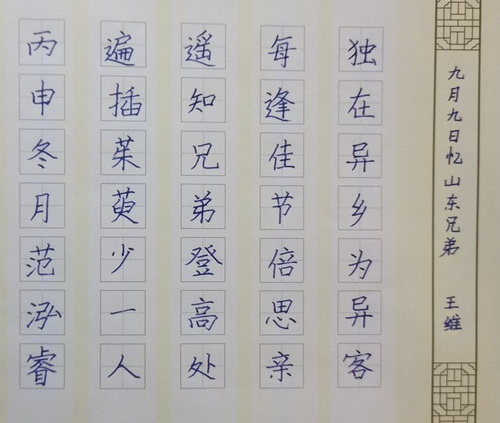 九月九日忆山东兄弟 王维
独在异乡为异客
每逢佳节倍思亲
遥知兄弟登高处
遍插茱萸少一人
丙申冬月范泓睿